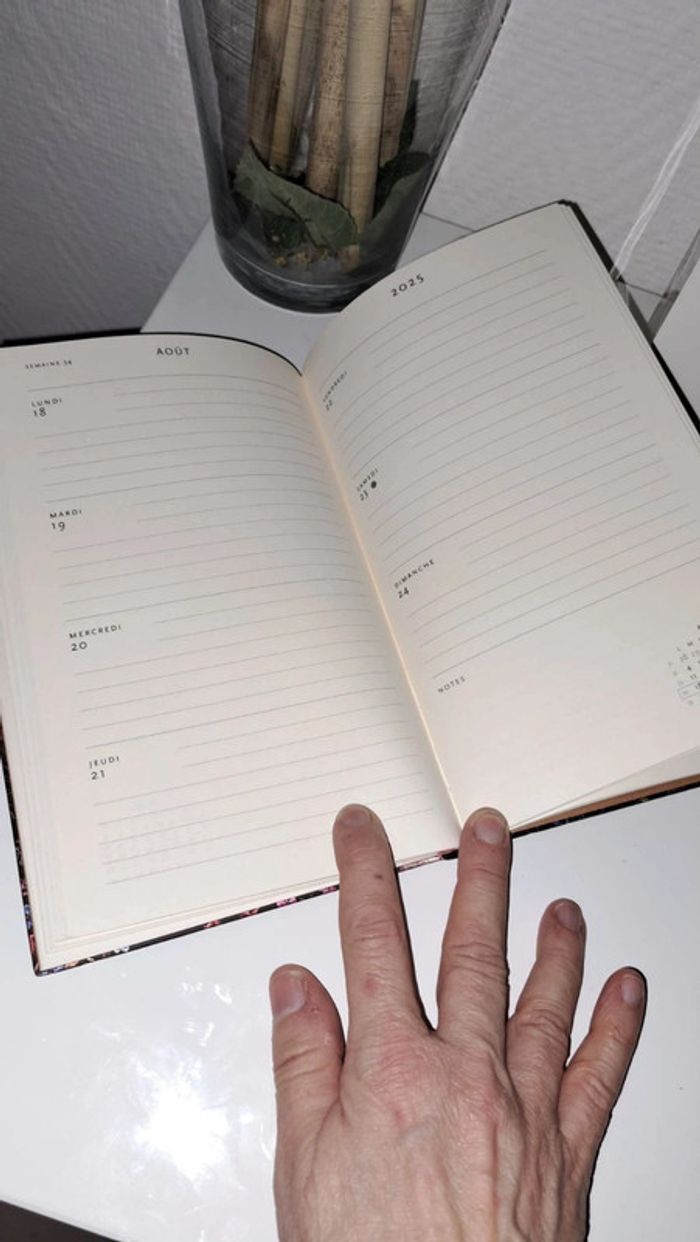 SEMAINE 34
AOÛT
LUNDI
18
MARDI
19
MERCREDI
20
JEUDI
21
2025
VENDREDI
22
SAMEDI
23
DIMANCHE
24
NOTES